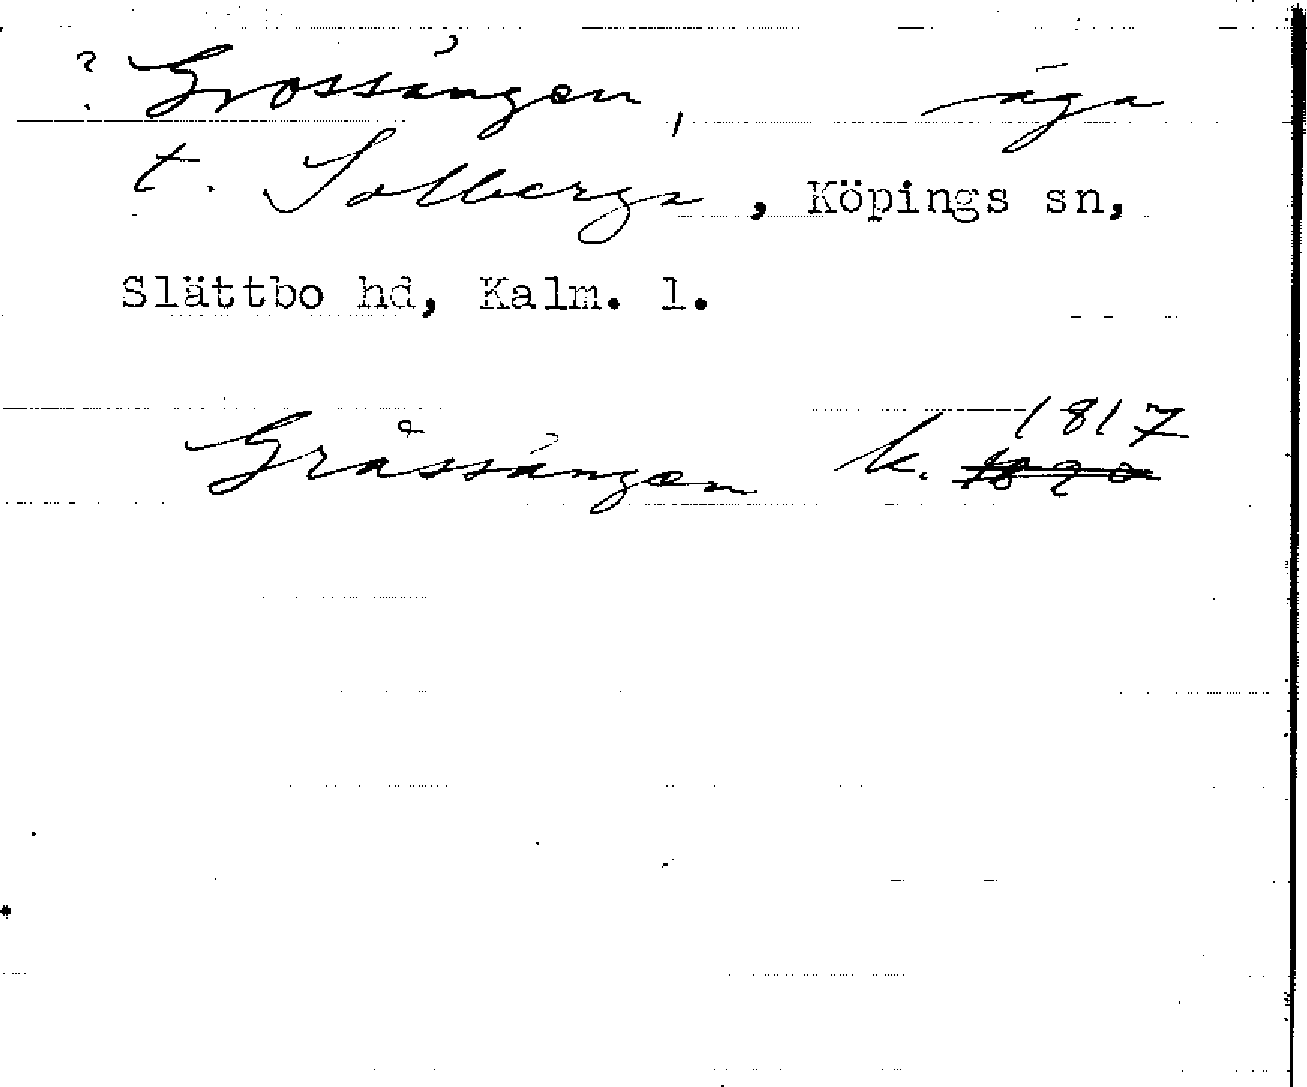 ? Grossängen, äga
t. Solberga, Köpings sn,
Slättbo hd, Kalm. l.
1817
Gråssängen k. 1820